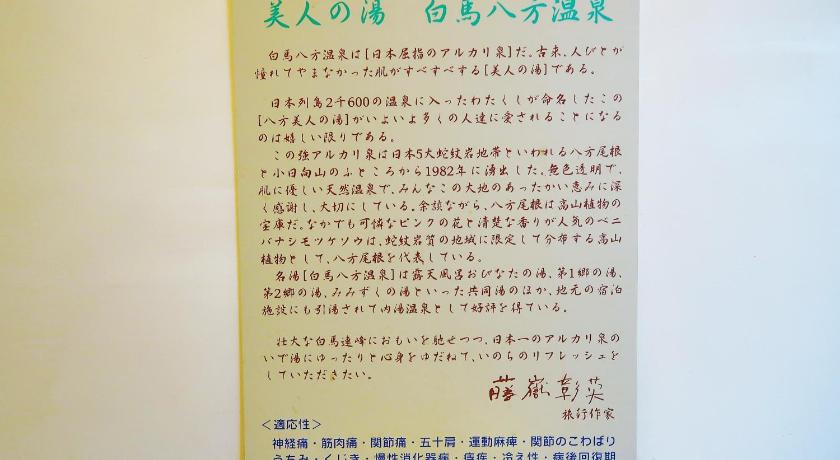 美人の湯 白馬八方温泉
白馬八方温泉は[日本屈指のアルカリ泉]だ。古来、人びとが
憧れてやまなかった肌がすべすべする[美人の湯]である。
日本列島2千600の温泉に入ったわたくしが命名したこの
[八方美人の湯]がいよいよ多くの人達に愛されることになる
のは嬉しい限りである。
この強アルカリ泉は日本5大蛇紋岩地帯といわれる八方尾根
と小日向山のふところから1982年に湧出した。無色透明で、
肌に優しい天然温泉で、みんなこの大地のあったかい恵みに深
く感謝し、大切にしている。余談ながら、八方尾根は高山植物の
宝庫だ。なかでも可憐なピンクの花と清楚な香りが人気のベニ
バナシモツケソウは、蛇紋岩質の地域に限定して分布する高山
植物として、八方尾根を代表している。
名湯[白馬八方温泉]は露天風呂おびなたの湯、第1郷の湯、
第2郷の湯、みみずくの湯といった共同湯のほか、地元の宿泊
施設にも引湯されて内湯温泉として好評を得ている。
壮大な白馬連峰におもいを馳せつつ、日本一のアルカリ泉の
いで湯にゆったりと心身をゆだねて、いのちのリフレッシュを
していただきたい。
藤嶽彰英
旅行作家
<適応性>
神経痛・筋肉痛・関節痛・五十肩・運動麻痺・関節のこわばり
うちみ・くじき・慢性消化器病・痔疾・冷え性・病後回復期